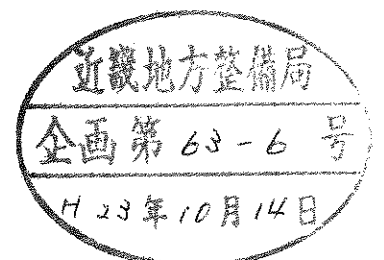 近畿地方整備局
企画第 63-6 号
H 23年10月14日